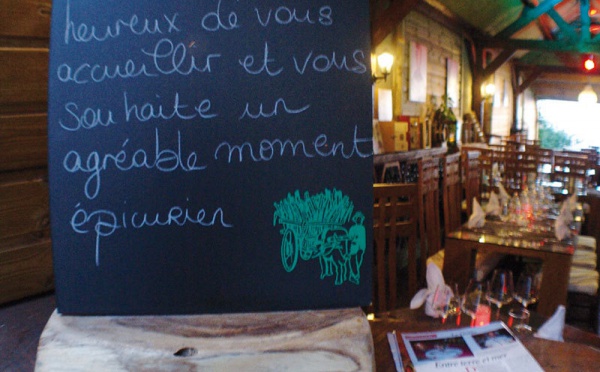 heureux de vous
accueillir et vous
souhaite un
agréable moment
épicurien
Entre terre et mer